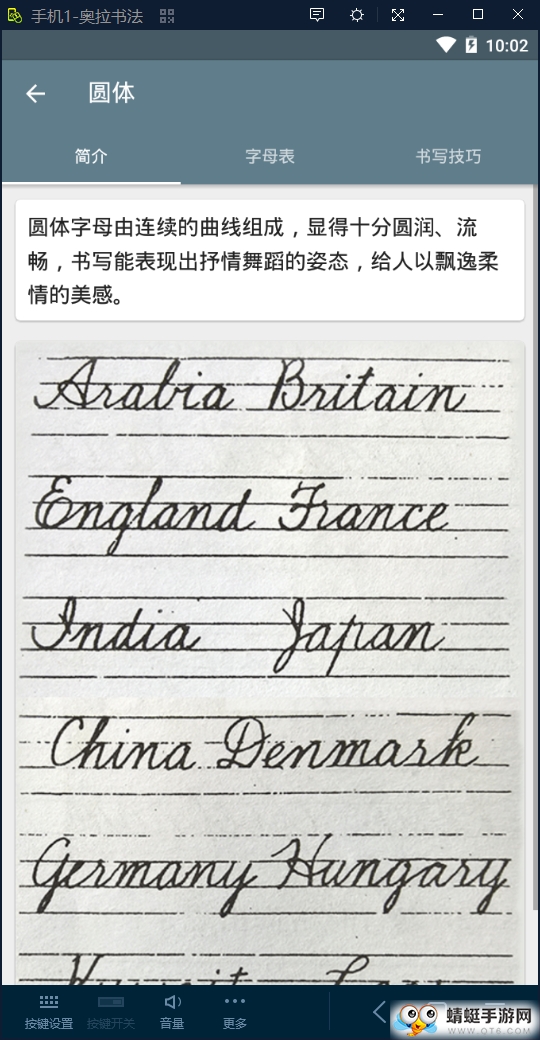 手机1-奥拉书法
10:02
圆体
简介 字母表 书写技巧
圆体字母由连续的曲线组成，显得十分圆润、流
畅，书写能表现出抒情舞蹈的姿态，给人以飘逸柔
情的美感。
Arabia Britain
England France
India Japan
China Denmark
Germany Hungary
按键设置 按键开关 音量 更多
蜻蜓手游网
WWW.QT6.COM